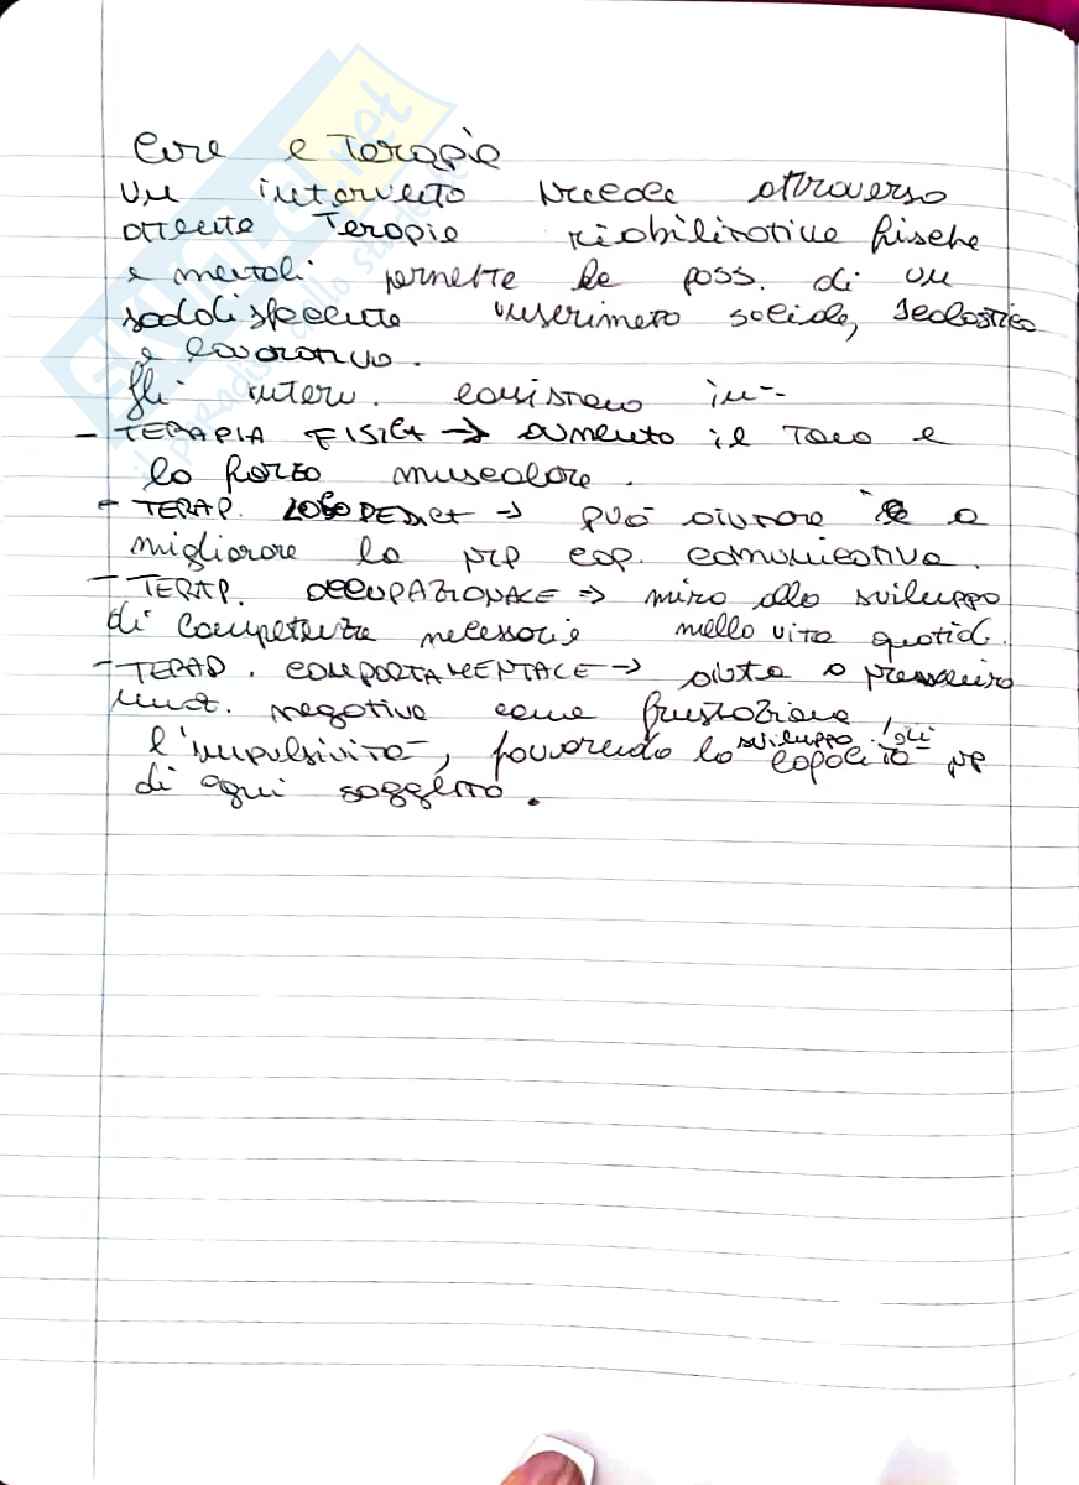 Cure e Terapie
Un intervento precoce attraverso
attente Terapie riabilitative fisiche
e mentali permette la poss. di un
soddisfacente inserimento sociale, scolastico
e lavorativo.
Gli interv. consistono in:
- TERAPIA FISICA → aumento il Tono e
la forza muscolare.
- TERAP. LOGOPEDICA → può aiutare a
migliorare la prp cap. comunicativa.
- TERAP. OCCUPAZIONALE → mira allo sviluppo
di competenze necessarie nella vita quotid.
- TERAP. COMPORTAMENTALE → aiuta a
negative come frustazione,
l'impulsività, favorendo lo sviluppo capacità prp
di ogni soggetto.
SKUOLA.net
il paradiso dello studente